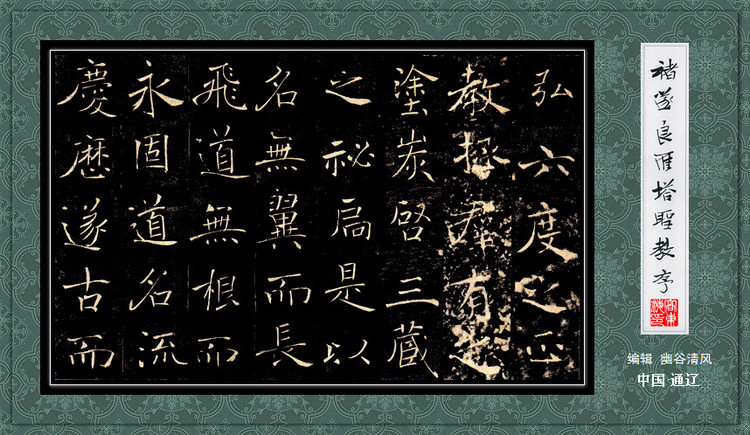 弘六度之正
教拯群有之
塗炭啓三藏
之祕扃是以
名無翼而長
飛道無根而
永固道名流
慶歷遂古而
褚遂良雁塔聖教序
编辑 幽谷清风
中国·通辽